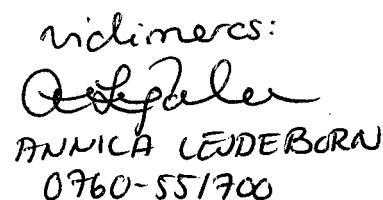 Vidimeras:
ANNICA LENDEBORN
0760-551700